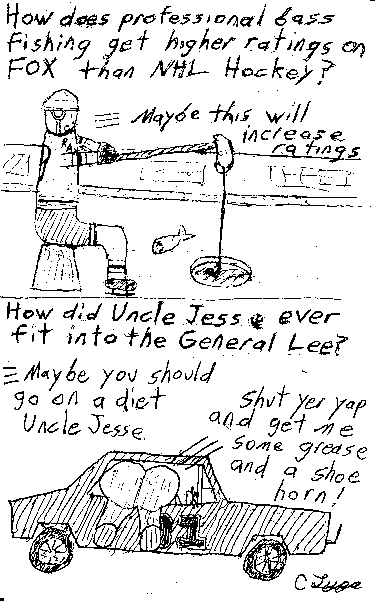 How does professional bass
fishing get higher ratings on
FOX than NHL Hockey?
Maybe this will
increase
ratings
How did Uncle Jesse ever
fit into the General Lee?
Maybe you should
go on a diet
Uncle Jesse.
Shut yer yap
and get me
some grease
and a shoe
horn!
01
C